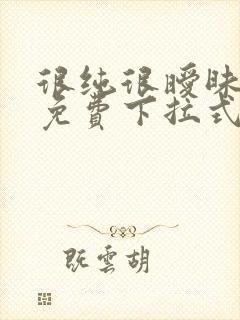 很纯很暧昧
免費下拉式
既雲胡